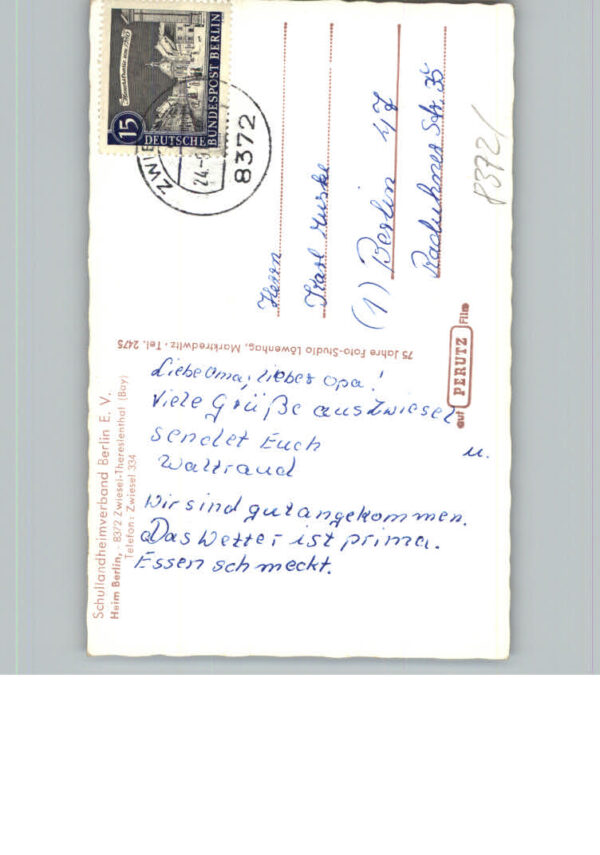 15
DEUTSCHE
BUNDESPOST BERLIN
ZWIE
24.-
8372
Herrn
Karl
(1) Berlin 47
Str. 35
8372/
75 Jahre Foto-Studio Löwenhag, Marktredwitz · Tel. 2475
auf PERUTZ Film
Schullandheimverband Berlin E. V.
Heim Berlin, · 8372 Zwiesel-Theresienthal (Bay)
Telefon: Zwiesel 334
Liebe Oma, lieber Opa!
Viele Grüße aus Zwiesel
sendet Euch
u.
Waltraud
Wir sind gut angekommen.
Das Wetter ist prima.
Essen schmeckt.